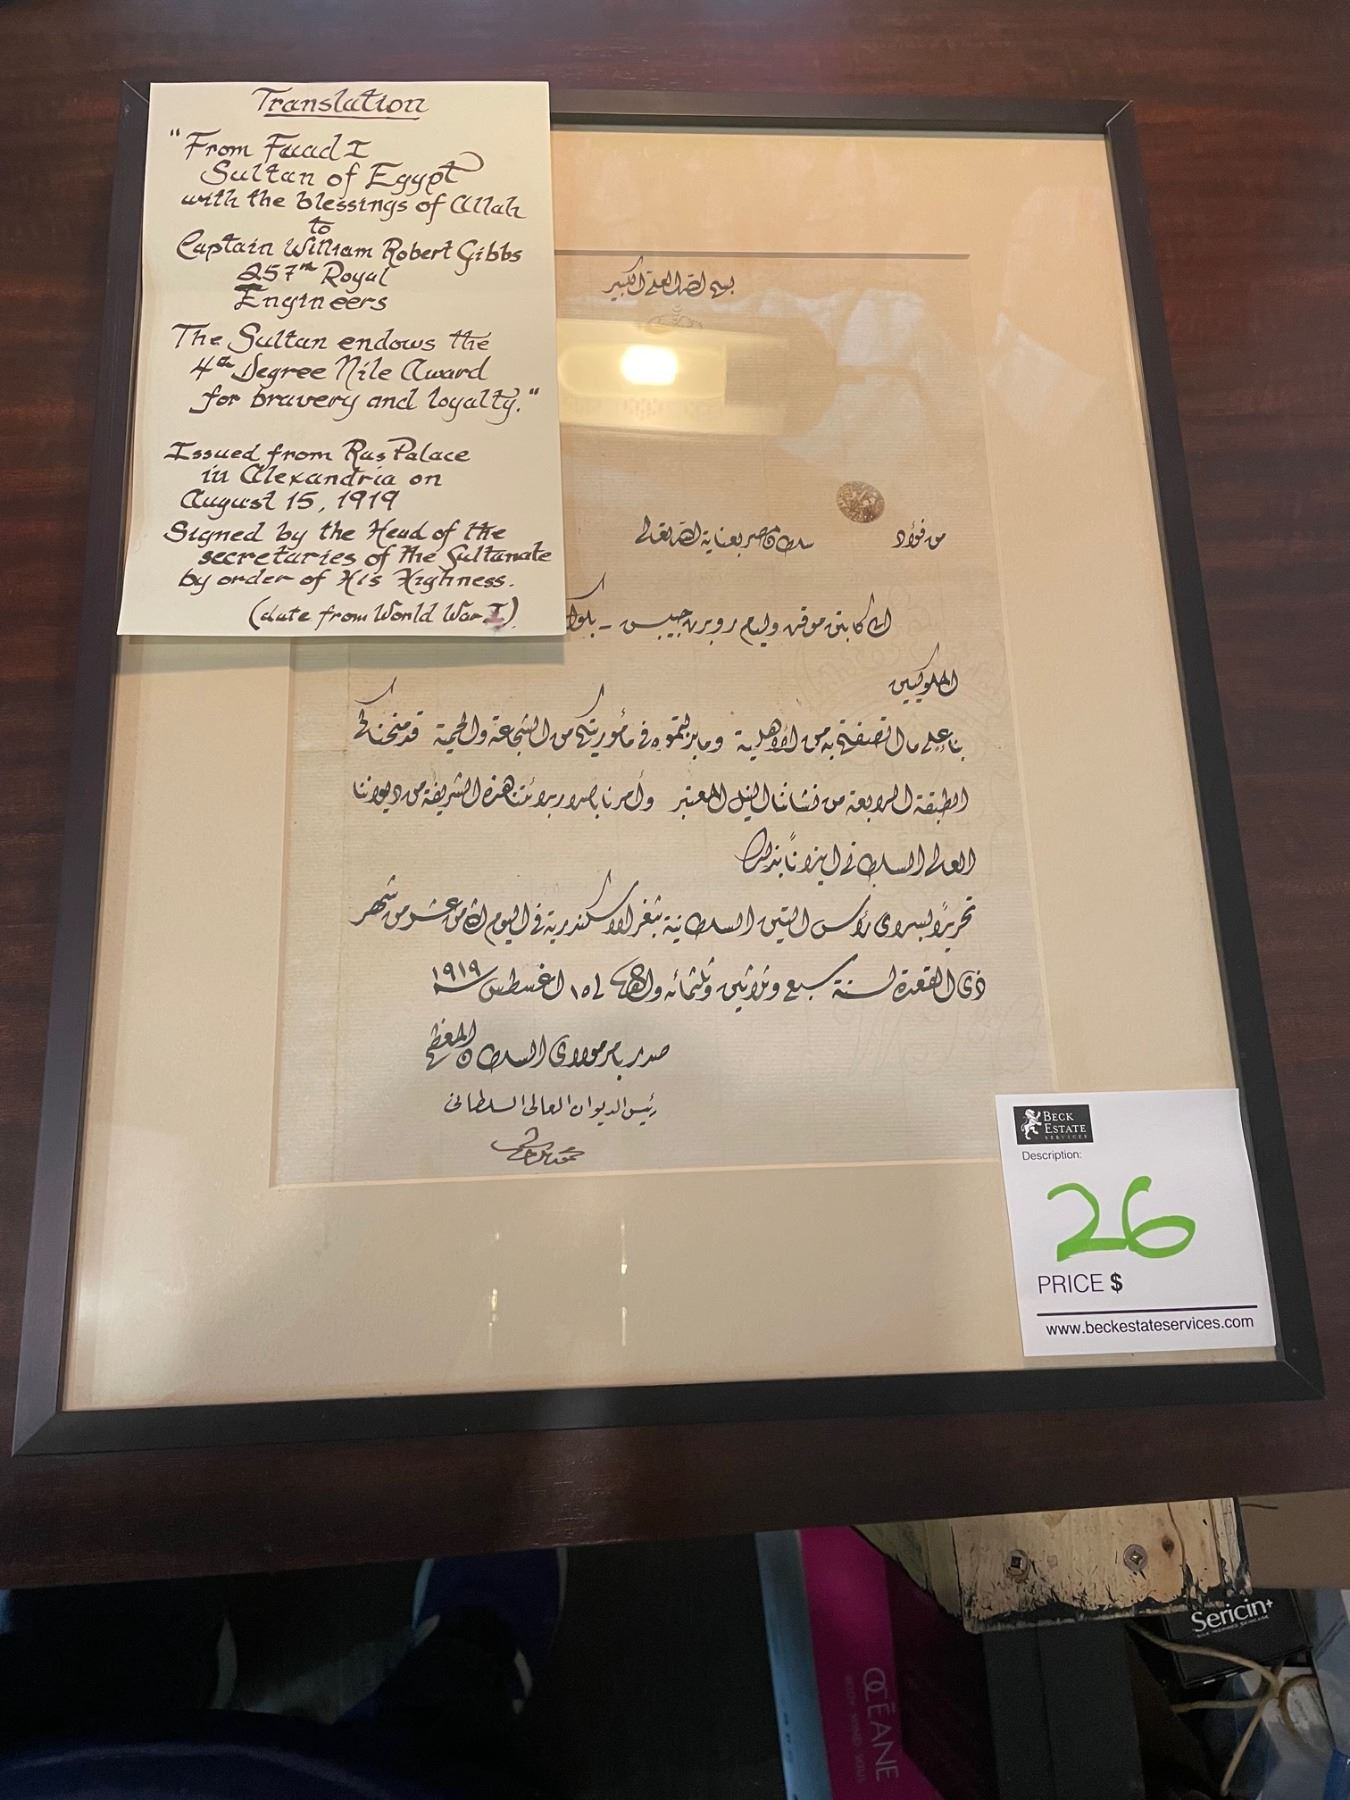 Translation
"From Fuad I
Sultan of Egypt
with the blessings of Allah
to
Captain William Robert Gibbs
257th Royal
Engineers
The Sultan endows the
4th Degree Nile Award
for bravery and loyalty."
Issued from Ras Palace
in Alexandria on
August 15, 1919
Signed by the Head of the
secretaries of the Sultanate
by order of His Highness.
(date from World War I)
بسم الله العلي الكبير
من فؤاد سلطان مصر بعناية الله تعالى
الى كابتن موقت وليم روبرت جيبس - بلوك
الملوكيين
بناء على ما اتصفتم به من الأهلية وما بذلتموه في مأموريتكم من الشجاعة والحمية قد منحناكم
الطبقة الرابعة من نشاننا النيل المعتبر وأمرنا باصدار براءتنا هذه الشريفة من ديواننا
العالي السلطاني ايذانًا بذلك
تحريرًا بسراي رأس التين السلطانية بثغر الاسكندرية في اليوم الثامن عشر من شهر
ذي القعدة لسنة سبع وثلاثين وثلثمائه والف ١٥ اغسطس سنة ١٩١٩
صدر بامر مولاي السلطان المعظم
رئيس الديوان العالي السلطاني
BECK
ESTATE
SERVICES
Description:
26
PRICE $
www.beckestateservices.com
Sericin+
OCĒANE